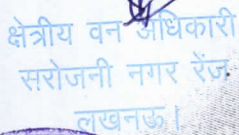 क्षेत्रीय वन अधिकारी
सरोजनी नगर रेंज
लखनऊ।